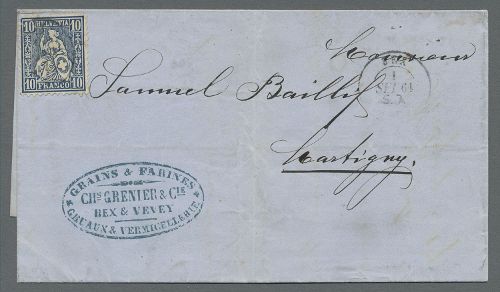 10 HELVETIA 10
10 FRANCO 10
Monsieur
Samuel Baillif
Martigny.
BEX
1
61
GRAINS & FARINES
CHS GRENIER & CIE
BEX & VEVEY
GRUAUX & VERMICELLERIE